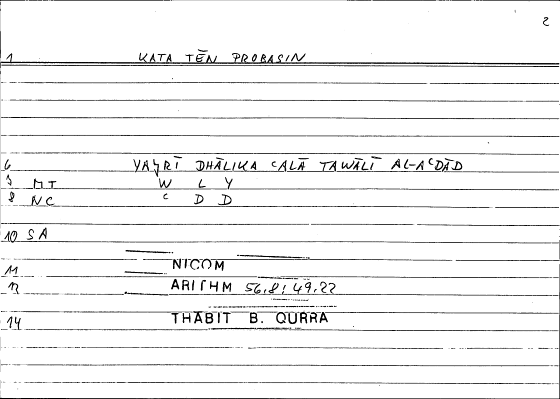 2
1 KATA TĒN PROBASIN
6 YAǦRĪ DHĀLIKA ʿALĀ TAWĀLĪ AL-AʿDĀD
7 MT W L Y
8 NC ʿ D D
10 SA
11 NICOM
13 ARITHM 56,8; 49,22
14 THĀBIT B. QURRA